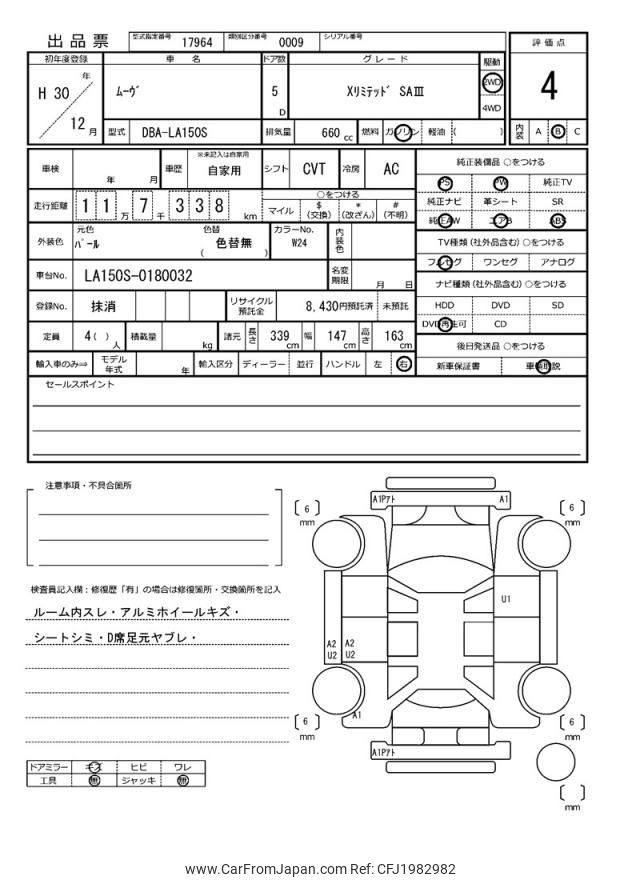 出品票
型式指定番号 17964 類別区分番号 0009 シリアル番号
評価点
4
初年度登録 車名 ドア数 グレード 駆動
H 30 年 12 月
ムーヴ
5 D
Xリミテッド SAⅢ
2WD
4WD
型式 DBA-LA150S 排気量 660 cc 燃料 ガソリン 軽油 ( )
内装 A B C
車検 年 月 車歴 ※未記入は自家用 自家用 シフト CVT 冷房 AC
走行距離 1 1 万 7 千 3 3 8 km
○をつける
マイル $(交換) *(改ざん) #(不明)
外装色 元色 パール 色替 ( 色替無 ) カラーNo. W24 内装色
車台No. LA150S-0180032 名変期限 月 日
登録No. 抹消 リサイクル預託金 8,430円預託済 未預託
定員 4( )人 積載量 kg 諸元 長さ 339 cm 幅 147 cm 高さ 163 cm
輸入車のみ⇨ モデル年式 年 輸入区分 ディーラー 並行 ハンドル 左 右
純正装備品 ○をつける
PS PW 純正TV
純正ナビ 革シート SR
純正AW エアB ABS
TV種類 (社外品含む) ○をつける
フルセグ ワンセグ アナログ
ナビ種類 (社外品含む) ○をつける
HDD DVD SD
DVD再生可 CD
後日発送品 ○をつける
新車保証書 車輌取説
セールスポイント
注意事項・不具合箇所
検査員記入欄:修復歴「有」の場合は修復箇所・交換箇所を記入
ルーム内スレ・アルミホイールキズ・
シートシミ・D席足元ヤブレ・
ドアミラー キズ ヒビ ワレ
工具 無 ジャッキ 無
A1Pアト A1
[ 6 ] mm
[ 6 ] mm
U1
A2 U2
A2 U2
A1
[ 6 ] mm
[ 6 ] mm
A1Pアト
[ ] mm
www.CarFromJapan.com Ref: CFJ1982982